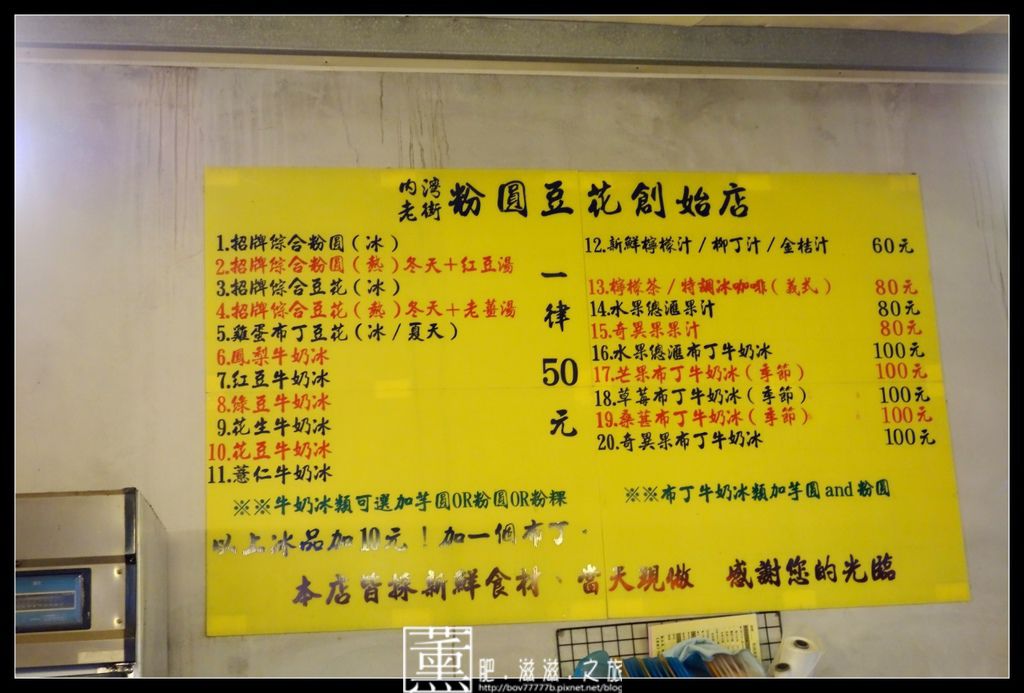 內灣
老街 粉圓豆花創始店
1.招牌綜合粉圓(冰)
2.招牌綜合粉圓(熱)冬天+紅豆湯
3.招牌綜合豆花(冰)
4.招牌綜合豆花(熱)冬天+老薑湯
5.雞蛋布丁豆花(冰/夏天)
6.鳳梨牛奶冰
7.紅豆牛奶冰
8.綠豆牛奶冰
9.花生牛奶冰
10.花豆牛奶冰
11.薏仁牛奶冰
一律50元
※※牛奶冰類可選加芋圓OR粉圓OR粉粿
以上冰品加10元!加一個布丁.
12.新鮮檸檬汁/柳丁汁/金桔汁 60元
13.檸檬茶/特調冰咖啡(義式) 80元
14.水果總滙果汁 80元
15.奇異果果汁 80元
16.水果總滙布丁牛奶冰 100元
17.芒果布丁牛奶冰(季節) 100元
18.草莓布丁牛奶冰(季節) 100元
19.桑葚布丁牛奶冰(季節) 100元
20.奇異果布丁牛奶冰 100元
※※布丁牛奶冰類加芋圓and粉圓
本店皆採新鮮食材、當天現做 感謝您的光臨
薰 肥.滋滋.之旅
http://bov77777b.pixnet.net/blog